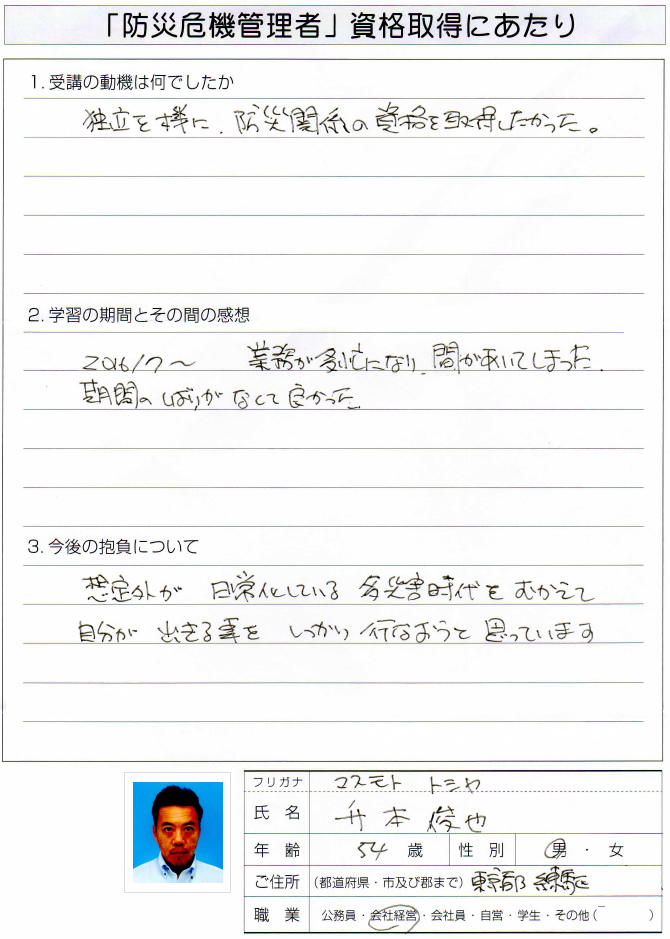 「防災危機管理者」資格取得にあたり
1. 受講の動機は何でしたか
独立を機に、防災関係の資格を取得したかった。
2. 学習の期間とその間の感想
2016/7～　業務が多忙になり、間があいてしまった、
期間のしばりがなくて良かった
3. 今後の抱負について
想定外が 日常化している 多災害時代を むかえて
自分が 出きる事を しっかり 行なおうと 思っています
フリガナ マスモト トシヤ
氏 名 升本 俊也
年 齢 54 歳 性 別 男 ・ 女
ご住所 (都道府県・市及び郡まで) 東京都 練馬区
職 業 公務員・会社経営・会社員・自営・学生・その他( )